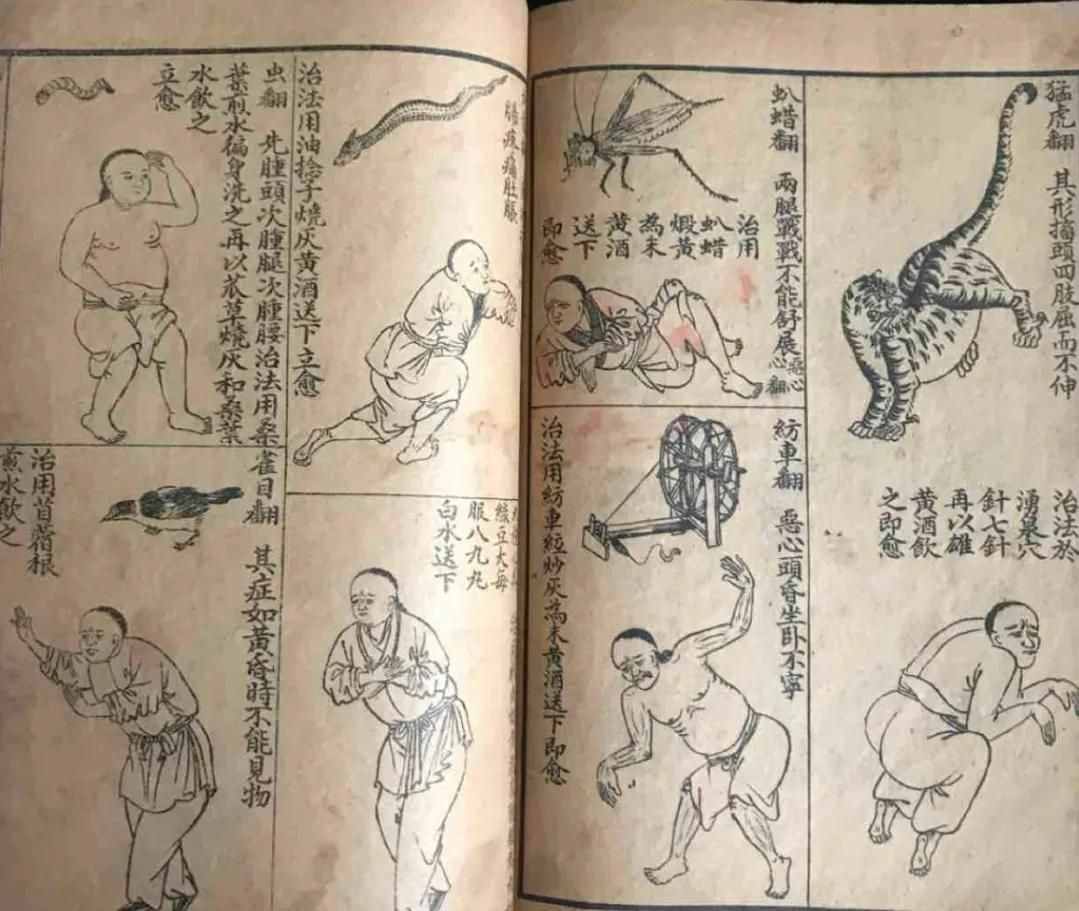 猛虎翻　其形摘頭四肢屈而不伸
治法於
湧墓穴
針七針
再以雄
黃酒飲
之即愈
虯蜡翻　兩腿戰戰不能舒展惡心
心翻
治用
虯蜡
煅黃
為末
黃酒
送下
即愈
紡車翻　惡心頭昏坐卧不寧
治法用紡車經炒灰為末黃酒送下即愈
疼痛肚脹
治法用油捻子燒灰黃酒送下立愈
菉豆大每
服八九丸
白水送下
虫翻　先腫頭次腫腿次腫腰治法用桑
葉煎水徧身洗之再以衣草燒灰和桑葉
水飲之
立愈
雀目翻　其症如黃昏時不能見物
治用苜蓿根
煎水飲之